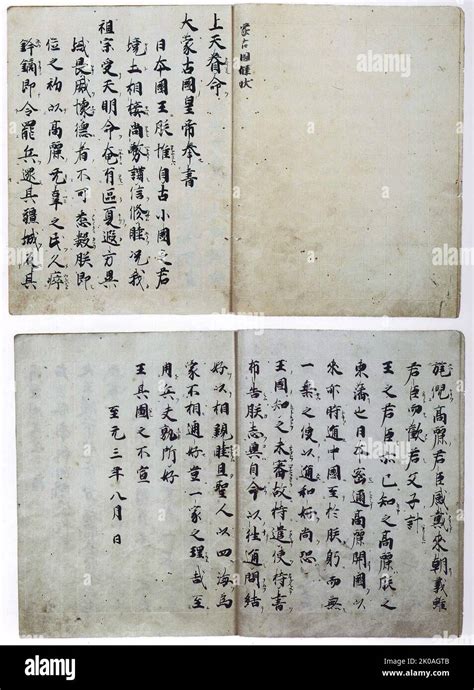 蒙古国牒状
上天眷命
大蒙古國皇帝奉書
日本國王朕惟自古小國之君
境土相接尚務講信修睦況我
祖宗受天明命奄有區夏遐方異
域畏威懷德者不可悉數朕即
位之初以高麗无辜之民久瘁
鋒鏑即令罷兵還其疆域反其
旄倪高麗君臣感戴來朝義雖
君臣而歡若父子計
王之君臣亦已知之高麗朕之
東藩也日本密邇高麗開國以
來亦時通中國至於朕躬而無
一乘之使以通和好尚恐
王國知之未審故特遣使持書
布告朕志冀自今以往通問結
好以相親睦且聖人以四海為
家不相通好豈一家之理哉至
用兵夫孰所好
王其圖之不宣
至元三年八月日
alamy
Image ID: 2K0AGTB
www.alamy.com